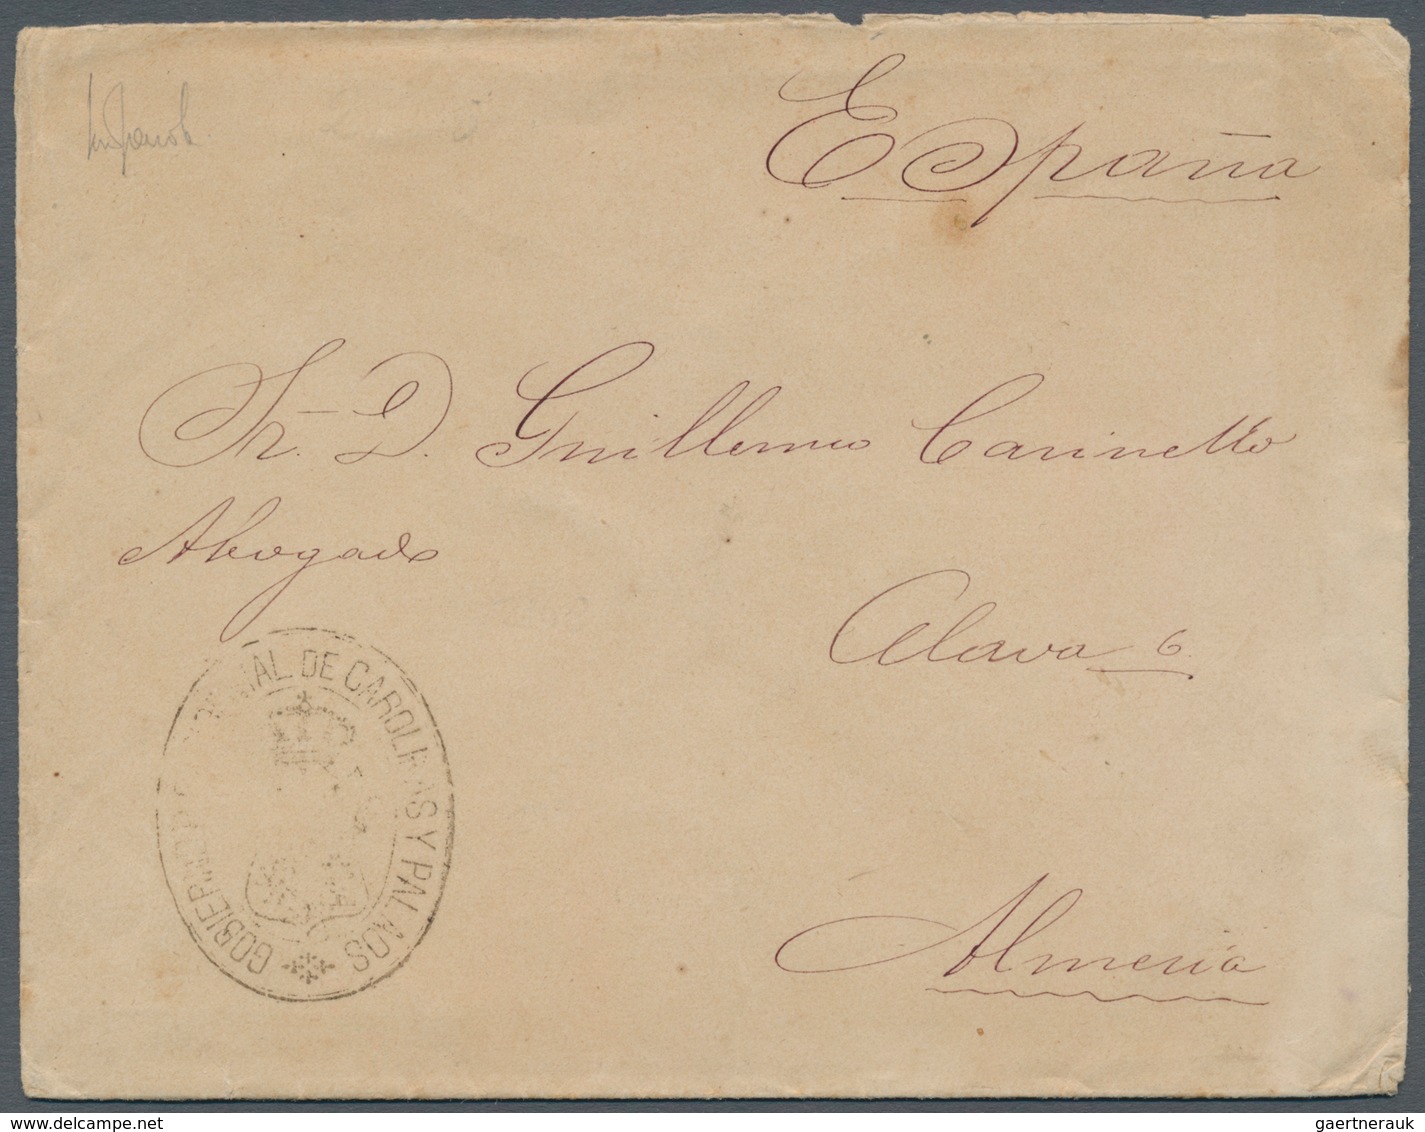 España
Sr. D. Guillermo Carinetto
Abogado
Alava 6
GOBIERNO P. ORIENTAL DE CAROLINAS Y PALAOS
Almeria
www.delcampe.net
gaertnerauk